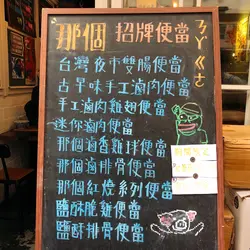 那個 招牌便當
ㄋㄚˋㄍㄜˋ
台灣夜市雙腸便當
古早味手工滷肉便當
手工滷肉雞翅便當
迷你滷肉便當
那個滷香雞球便當
那個滷排骨便當
那個紅燒系列便當
鹽酥脆雞便當
鹽酥排骨便當